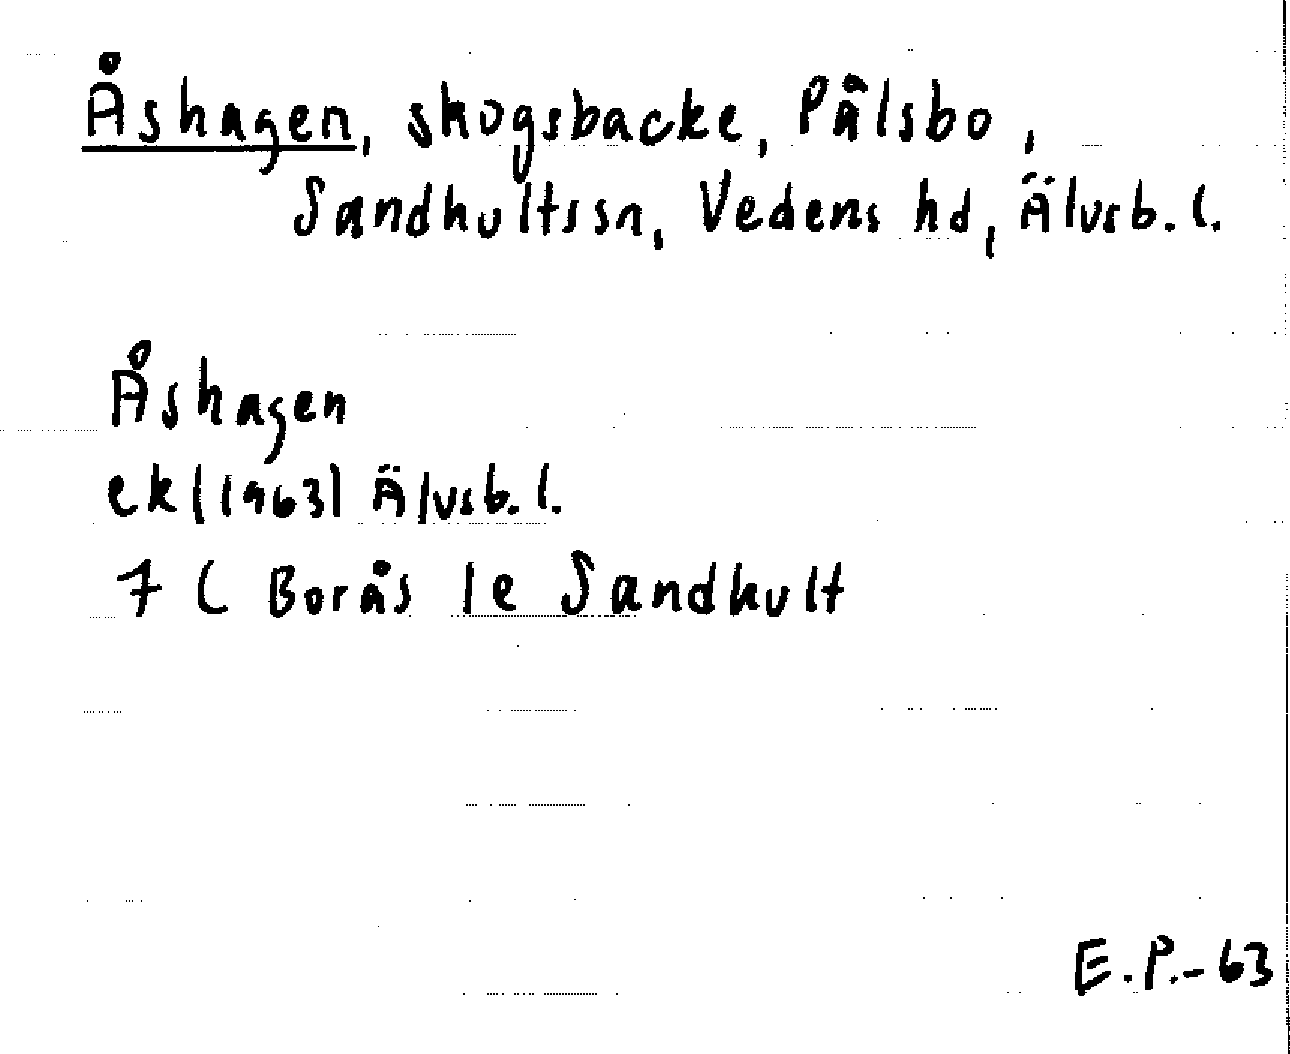 Åshagen, skogsbacke, Pålsbo,
Sandhultssn, Vedens hd, Älvsb. l.
Åshagen
ek (1963) Älvsb. l.
7 C Borås 1e Sandhult
E.P.-63